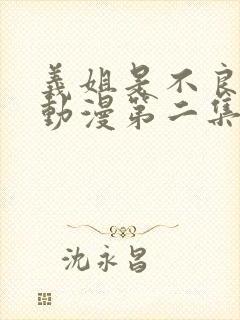 義姐是不良
動漫第二集
沈永昌